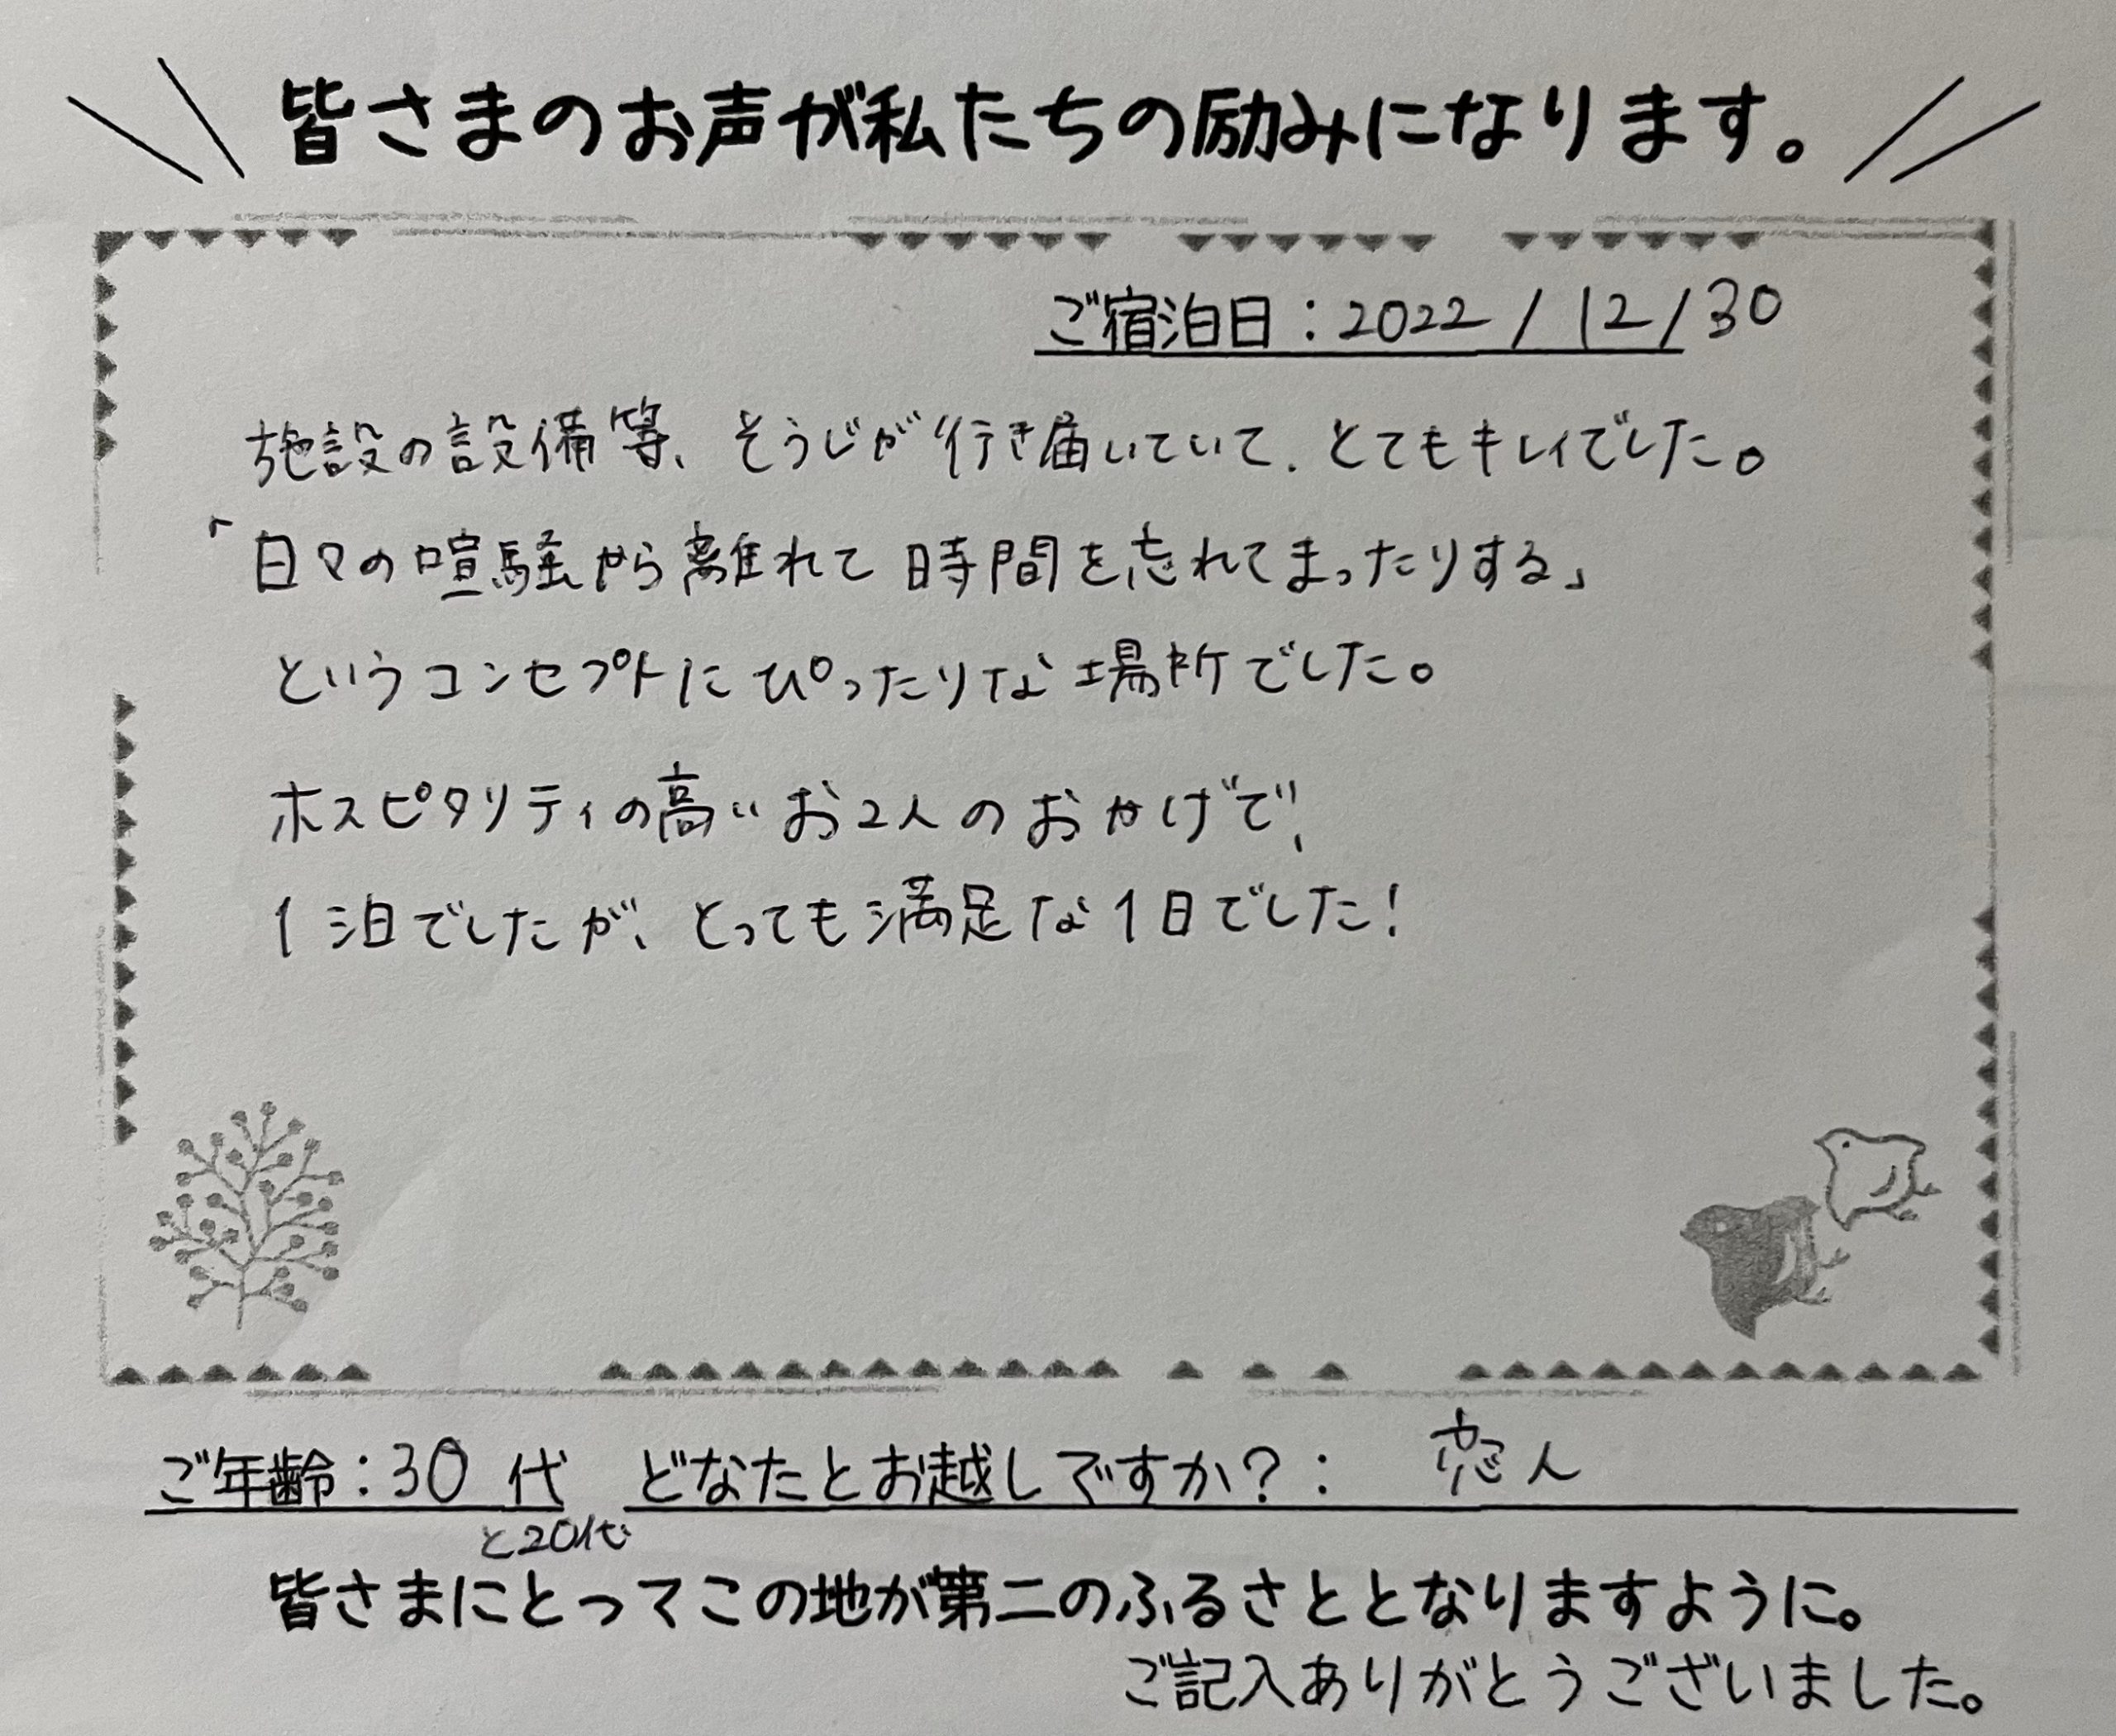 皆さまのお声が私たちの励みになります。
ご宿泊日：2022/12/30
施設の設備等、そうじが行き届いていて、とてもキレイでした。
「日々の喧騒から離れて時間を忘れてまったりする」
というコンセプトにぴったりな場所でした。
ホスピタリティの高いお2人のおかげで、
1泊でしたが、とっても満足な1日でした！
ご年齢：30代 どなたとお越しですか？： 恋人
と20代
皆さまにとってこの地が第二のふるさととなりますように。
ご記入ありがとうございました。